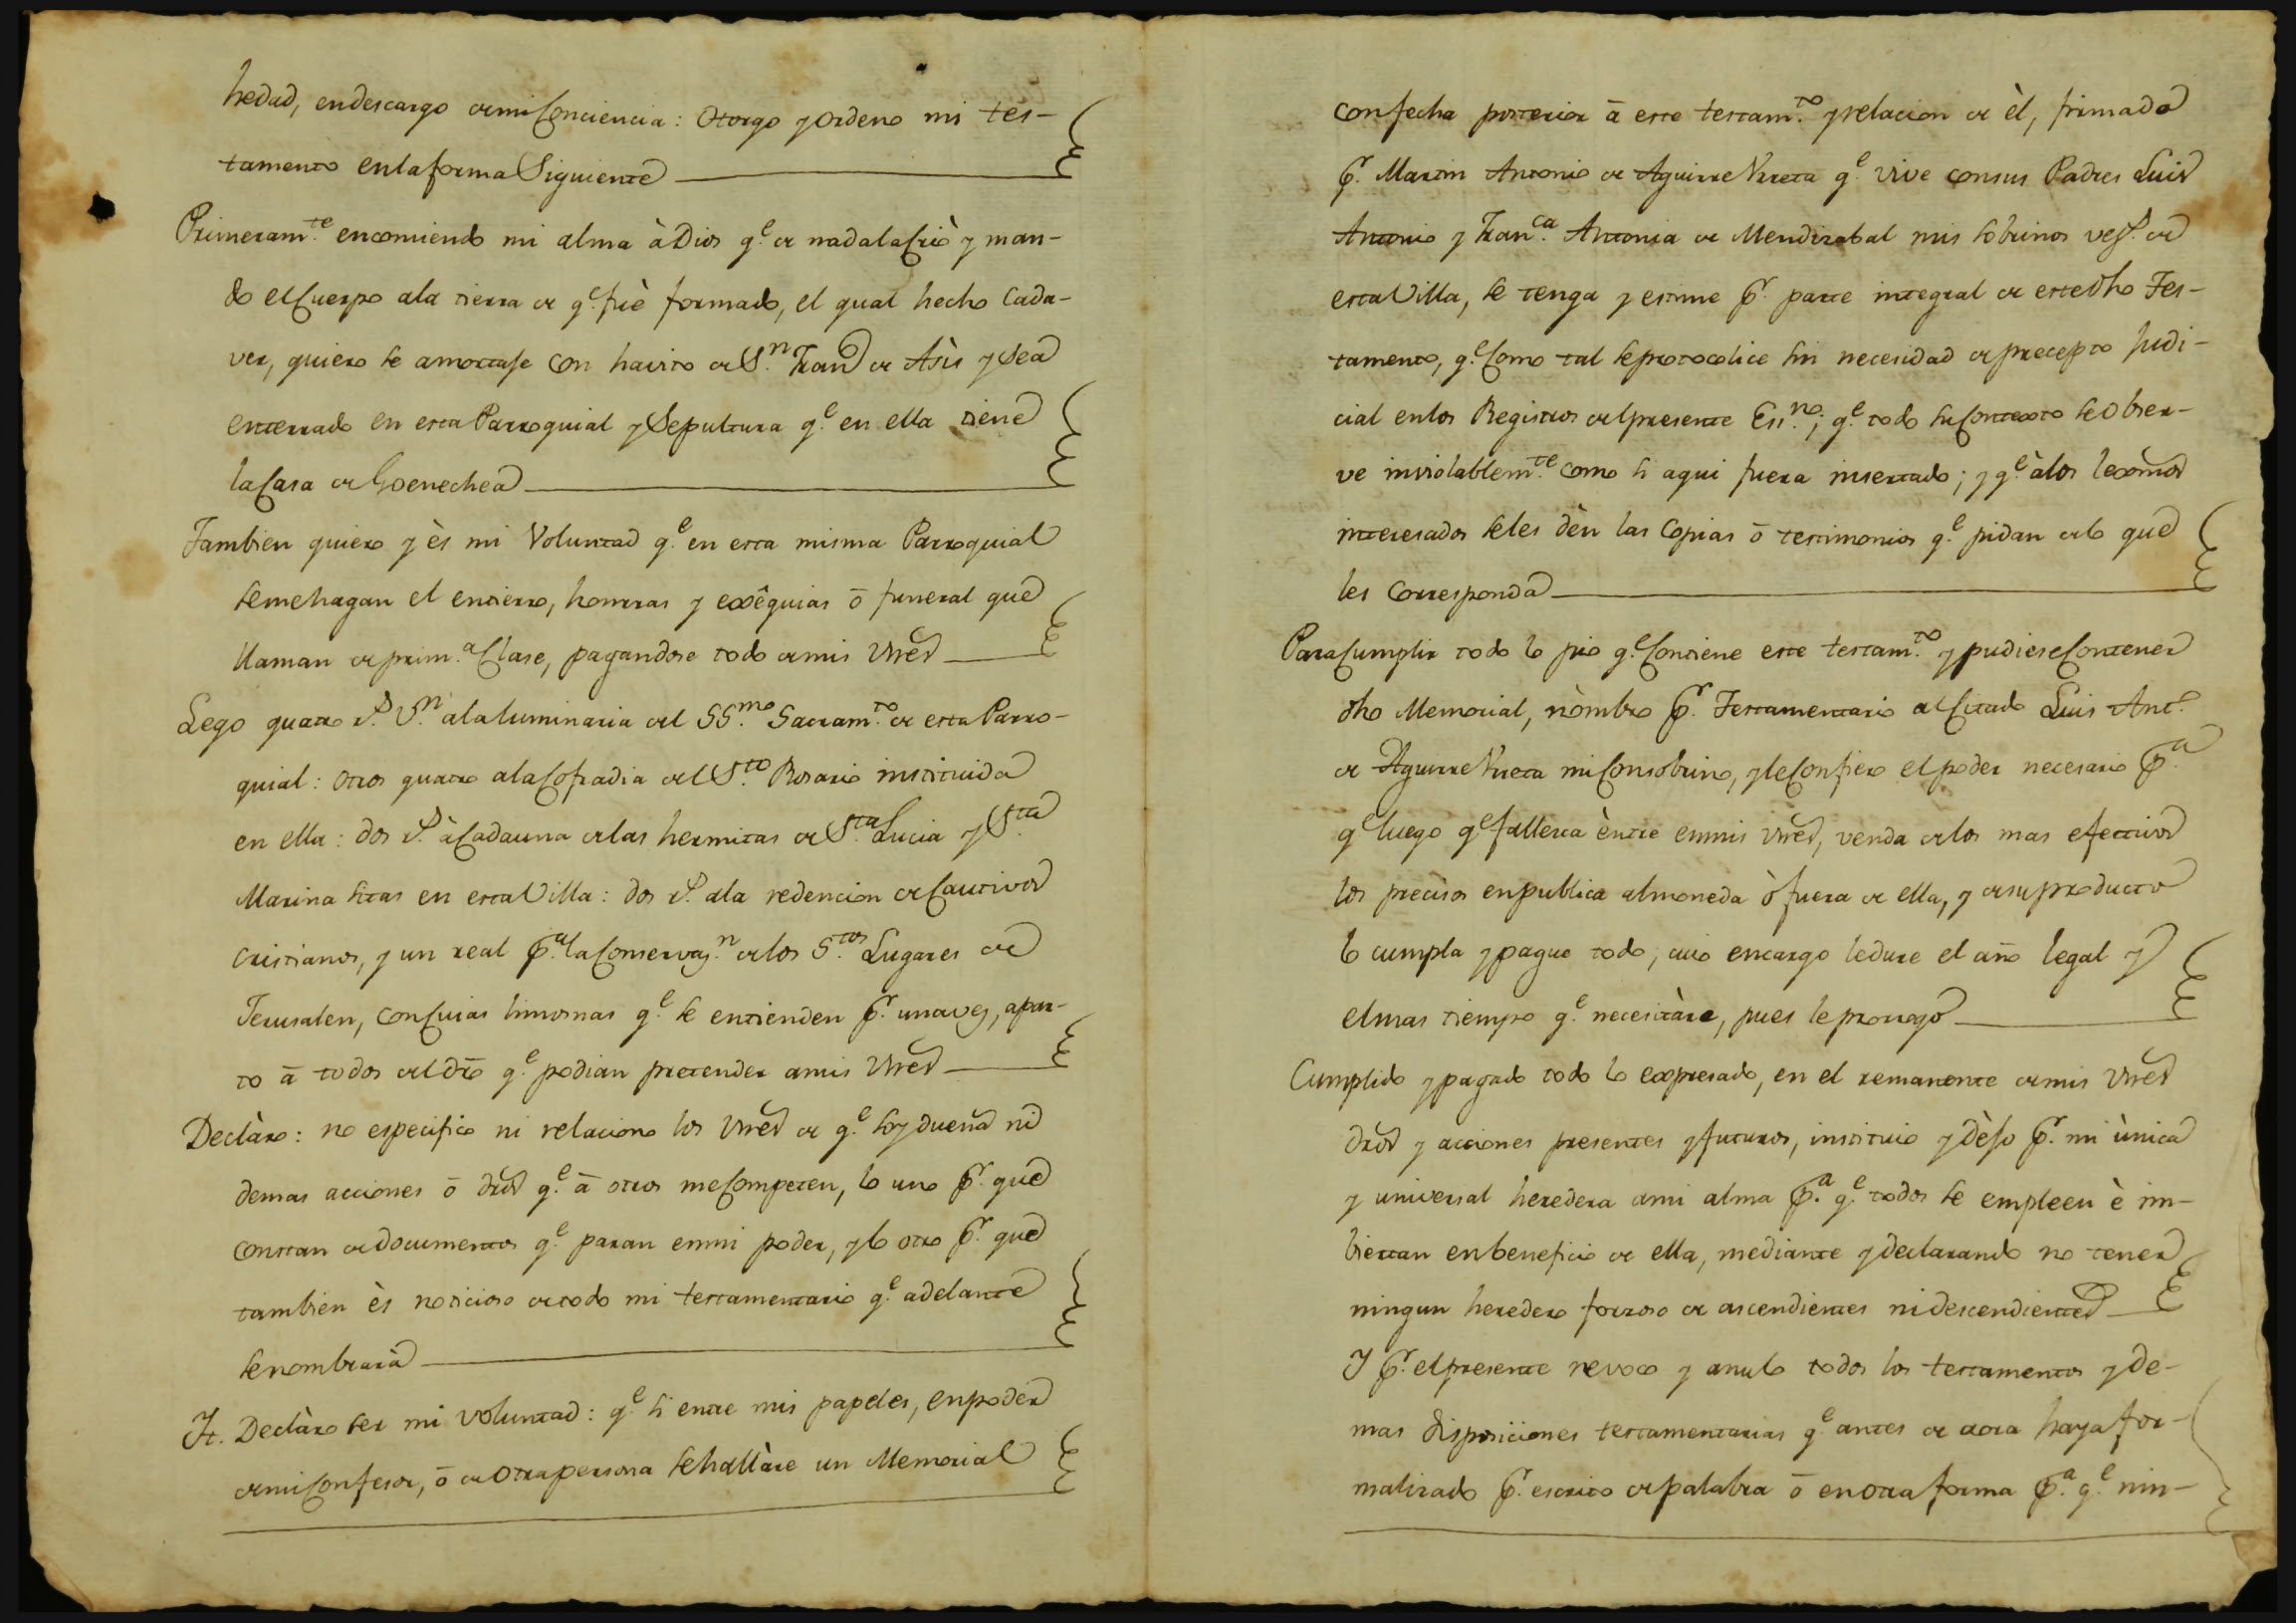 hedad, en descargo de mi Conciencia: Otorgo y ordeno mi tes-
tamento en la forma Siguiente
Primeram.te encomiendo mi alma à Dios q.e de nada la Criò y man-
do el Cuerpo ala tierra de q.e fuè formado, el qual hecho Cada-
ver, quiero se amortaje con havito de S.n Fran.co de Asis y Sea
enterrado en esta Parroquial y Sepultura q.e en ella tiene
la Casa de Goenechea
Tambien quiero y ès mi Voluntad q.e en esta misma Parroquial
se me hagan el entierro, honrras y exêquias ō funeral que
llaman de prim.a Clase, pagandose todo de mis vnes
Lego quatro r.s V.n ala luminaria del SS.mo Sacram.to de esta Parro-
quial: otros quatro ala Cofradia del S.to Rosario instituida
en ella: dos r.s à Cada una de las hermitas de S.ta Lucia y S.ta
Marina sitas en esta Villa: dos r.s ala redencion de Cautivos
cristianos, y un real p.a la Conservaz.n de los S.tos Lugares de
Jerusalen, con Cuias limosnas q.e se entienden p.r una vez, apar-
to ā todos del dr̄o q.e podian pretender amis vnes
Declàro: no especifico ni relaciono los vnes de q.e soy dueña ni
demas acciones ō dr̄os q.e ā otros me Competen, lo uno p.r que
constan de documentos q.e paran en mi poder, y lo otro p.r que
tambien ès noticioso de todo mi testamentario q.e adelante
se nombrarà
It. Declàro ser mi voluntad: q.e si entre mis papeles, en poder
de mi Confesor, ō de otra persona se hallàre un Memorial
con fecha posterior ā este testam.to y relacion de èl, firmado
p.r Martin Antonio de Aguirre Vrreta q.e vive con sus Padres Luis
Antonio y Fran.ca Antonia de Mendizabal mis sobrinos vez.s de
esta Villa, se tenga y estime p.r parte integral de este dho Tes-
tamento, q.e Como tal se protocolice sin necesidad de precepto Judi-
cial en los Registros del presente Ess.no; q.e todo su Contexto se obser-
ve inviolablem.te como si aqui fuera insertado; y q.e àlos lexōmos
interesados se les dèn las Copias ō testimonios q.e pidan de lo que
les Corresponda
Para Cumplir todo lo pio q.e Contiene este testam.to y pudiese Contener
dho Memorial, nòmbro p.r Testamentario al Citado Luis Ant.o
de Aguirre Vrreta mi Consobrino, y le Confiero el poder necesario p.a
q.e luego q.e fallezca èntre en mis vnes, venda de los mas efectivos
los precisos en publica almoneda ò fuera de ella, y de su producto
lo cumpla y pague todo, cuio encargo le dure el año legal y
el mas tiempo q.e necesitàre, pues le prorrogo
Cumplido y pagado todo lo expresado, en el remanente de mis vnes
dr̄os y acciones presentes y futuros, instituio y dèjo p.r mi ùnica
y universal heredera ami alma p.a q.e todos se empleen è im-
biertan en beneficio de ella, mediante y declarando no tener
ningun heredero forzoso de ascendientes ni descendientes
I p.r el presente revoco y anulo todos los testamentos y de-
mas disposiciones testamentarias q.e antes de aora haya for-
malizado p.r escrito de palabra ō en otra forma p.a q.e nin-